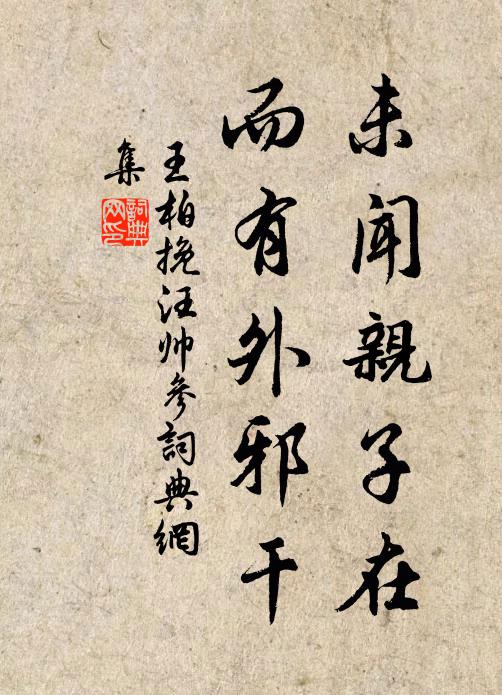 未闻親子在
而有外邪干
王柏挽汪帅參詞典網
集
詞典网印